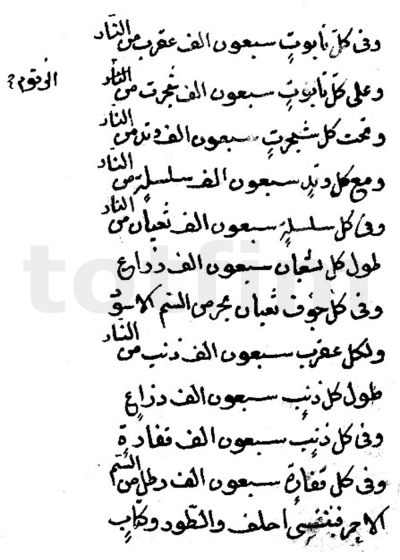 وفى كلّ تابوتٍ سبعون الف عقرب من النّار
وعلى كلّ تابوتٍ سبعون الف شجرت من النّار
وتحت كل شجرتٍ سبعون الف وتد من النّار
ومع كل وتدٍ سبعون الف سلسلةٍ من النّار
وفى كل سلسلةٍ سبعون الف ثعبان من النّار
طول كل ثعبان سبعون الف ذراع
وفى كل جوف ثعبان بحر من السّم الاسود
ولكل عقرب سبعون الف ذنب من النّار
طول كل ذنبٍ سبعون الف ذراعٍ
وفى كل ذنبٍ سبعون الف فقارةٍ
وفى كل فقارةٍ سبعون الف رطل من السّم
الاحر فبنفسى احلف والطور وكتابٍ
totfim